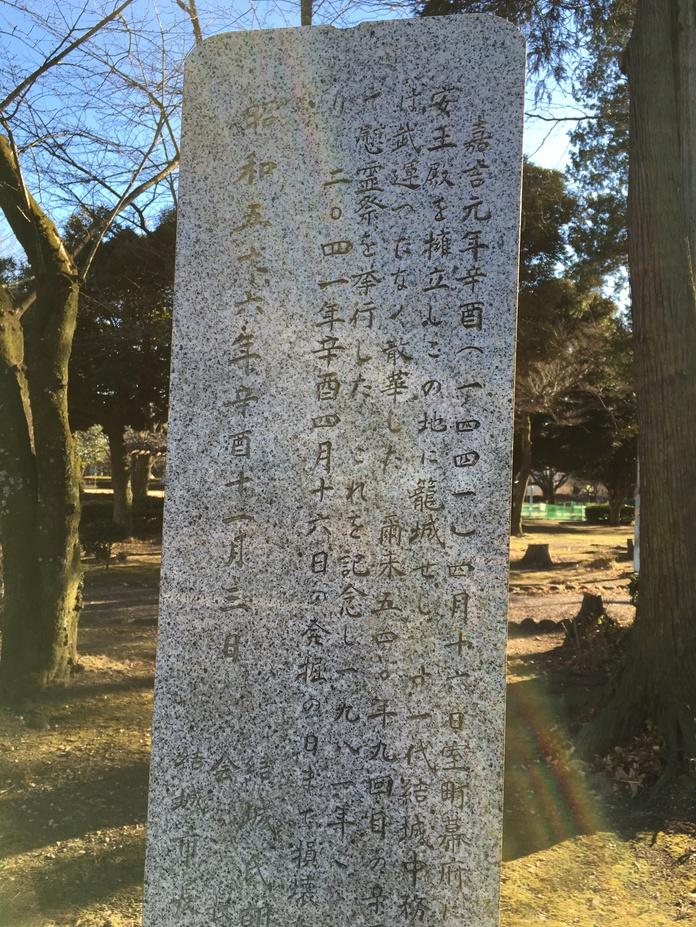 嘉吉元年辛酉(一四四一)四月十六日室町幕府に
安王殿を擁立しこの地に籠城せし十一代結城中務
は武運つたなく散華した 爾来五四〇年九回目の辛
慰霊祭を挙行した これを記念し一九八一年
二〇四一年辛酉四月十六日の発掘の日まで損壊
昭和五十六年辛酉十一月三日
結城氏
会 長
結城市長